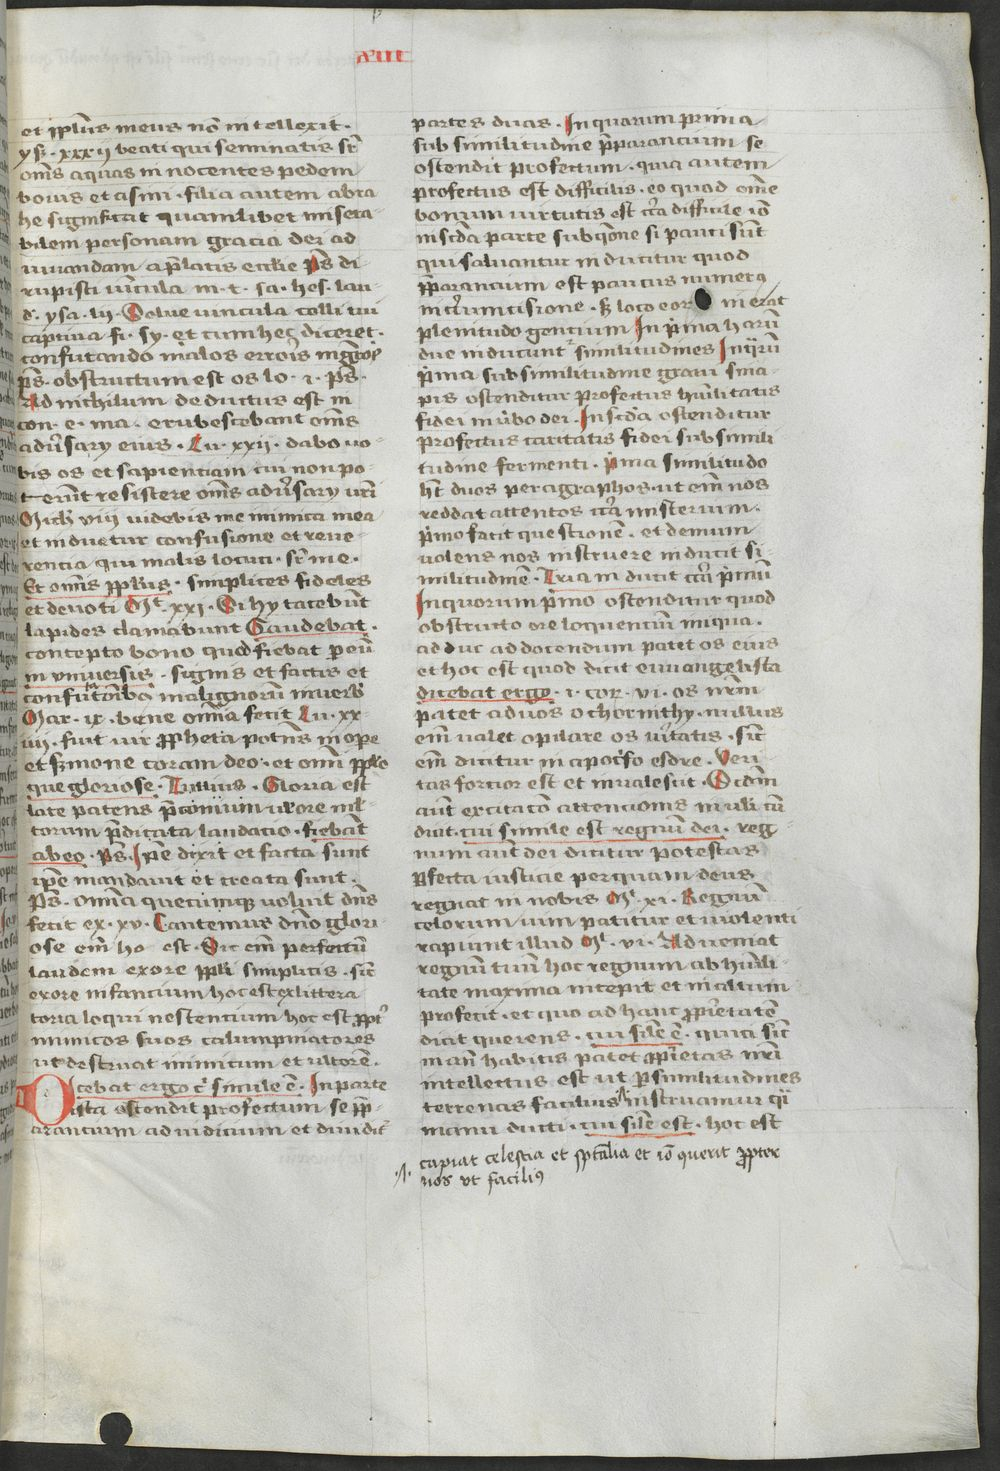 xiii
et ppl̄us meus nō intellexit.
ysa. xxxii beati qui seminatis sr̄
om̄s aquas innocentes pedem
bouis et asini. filia autem abra
he significat quamlibet misera
bilem personam gracia dei ad
iuuandam a p̄latis ecclie p̄s di
rupisti ui͞cula m. t. sa. hos. lau
d. ysa. lii. Solue uincula colli tui
captiua fi. sy. et cum hec diceret.
confutando malos errōis
p̄s. obstructum est os lo. i. p̄s.
Ad nichilum deductus est in
con. e. ma. erubescebant om̄s
adu̾sarij eius. Lu. xxii. dabo uo
bis os et sapientiam cui non po
terūt resistere om̄s adu̾sarij ur̄i
Mich̾ viii uidebis me inimica mea
et induetur confusione et reue
rentia qui malis locuti. sr̄ me.
Et om̄s ppl̄us. simplices fideles
et deuoti Mt. xxi. Si hy tacebūt
lapides clamabunt Gaudebat.
concepto bono quod fiebat per eū
in vniuersis. signis et factis et
confutōnibꝰ malignorū in uerb̾
Mar. ix. bene om̄ia fecit Lu. xx
iiii. fuit uir ꝓpheta potn̄s in ope
et s̾mone coram deo. et om̄i ppl̄o
que gloriose. Tullius. Gloria est
late patens p̄conium u̾l ore ml̾
torum p̄dicata laudatio. fiebāt
ab eo. p̄s. Ip̄e dixit et facta sunt
ip̄e mandauit et creata sunt.
P̄s. omnia quecumqꝫ uoluit dn̄s
fecit ex. xv. Cantemus dn̄o glori
ose em̄ ho est. Sic em̄ perfectū
laudem ex ore ppl̄i simplicis. sic̄
ex ore infancium hoc est ex littera
toria loqui nescentium hoc est ꝓpt̾
inimicos suos calumpniatores
ut destruat inimicum et ultorē.
Dicebat ergo c̾ simile ē. In parte
ista ostendit profectum se p̄p
arancium ad iudicium et diuidit̾
partes duas. In quarum prima
sub similitudine p̄parancium se
ostendit profectum. quia autem
profectus est difficilis. eo quod om̄e
bonum uirtutis est cͥca difficile iō
in scd̄a parte sub q̄one si pauci sūt
qui saluantur inducitur quod
p̄parancium est paucus numerꝰ
in circumcisione. sꝫ loco eor in erat
plenitudo gencium In p̾ma harū
due inducunt̾ similitudines In qͥrū
p̾ma sub similitudine grani sina
pis ostenditur profectus hūilitatis
fidei in u̾bo dei. In scd̄a ostenditur
profectus caritatis fidei sub simili
tudine fermenti. p̾ma similitudo
hꝫ duos peragraphos. ut em̄ nos
reddat attentos cͥca misterium.
p̾mo facit questionem. et demum
uolens nos instruere inducit si
militudinē. Tria inducit cͥca p̾mū
In quorum p̾mo ostenditur quod
obstructo ore loquencium iniqua.
adduc ad docendum patet os eius
et hoc est quod dicit euuangelista
dicebat ergo. i. cor. vi. os nr̄m
patet ad uos o chorinthy. nullus
em̄ ualet opilare os u̾itatis. sic̄
em̄ dicitur in apocͥfo esdre. Veri
tas forcior est et inualescit. Scdm
aut̄ excitacōm attencionis in ulī cū
dicit. cui simile est regnū dei. reg
num aut̄ dei dicitur potestas
p̱fecta iusticie per quam deus
regnat in nobis Mt. xi. Regnū
celorum uim patitur et uiolenti
rapiunt illud Mt. vi. Adueniat
regnū tuū hoc regnum ab hūili
tate maxima incepit et in altum
profecit. et quo ad hanc ꝓp̾etatē
dicit querens. cui sil̄e ē. quasi sic̄
man̄ habitis patet ꝓp̾ietas nr̄i
intellectus est ut p̱ similitudines
terrenas facilius instruamur qͣi
manu ducti. cui sil̄e est. hoc est
·/|· capiat celestia et sp̄ualia et iō querit ꝓpter
nos vt faciliꝰ